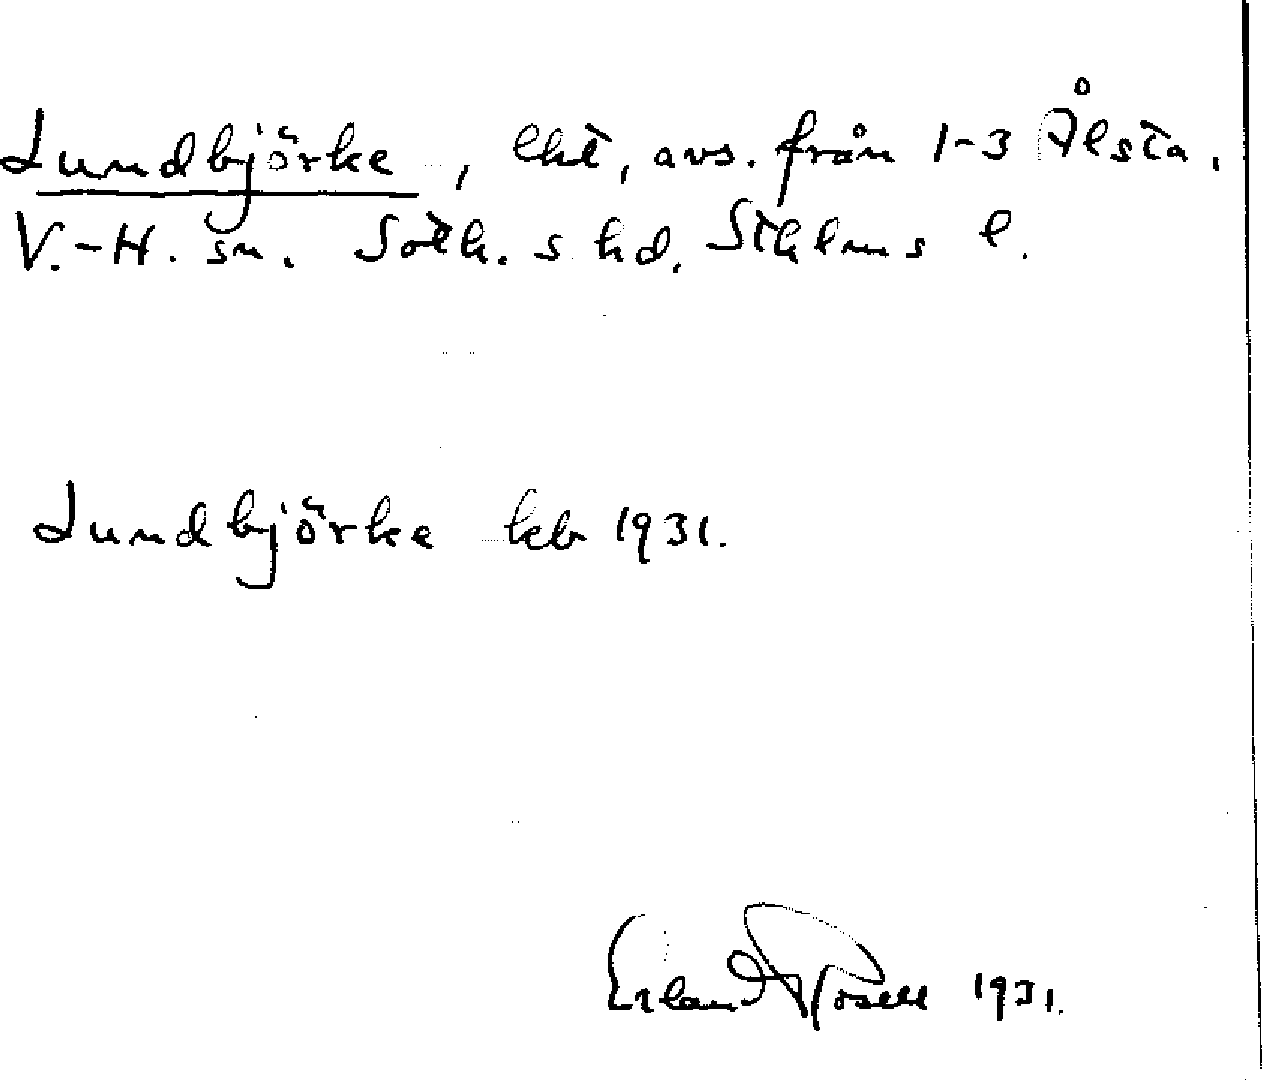 Lundbjörke, lht, avs. från 1-3 Ålsta.
V.-H. sn. Soth. s hd. Sthlms l.
Lundbjörke kb 1931.
Erland Rosell 1931.